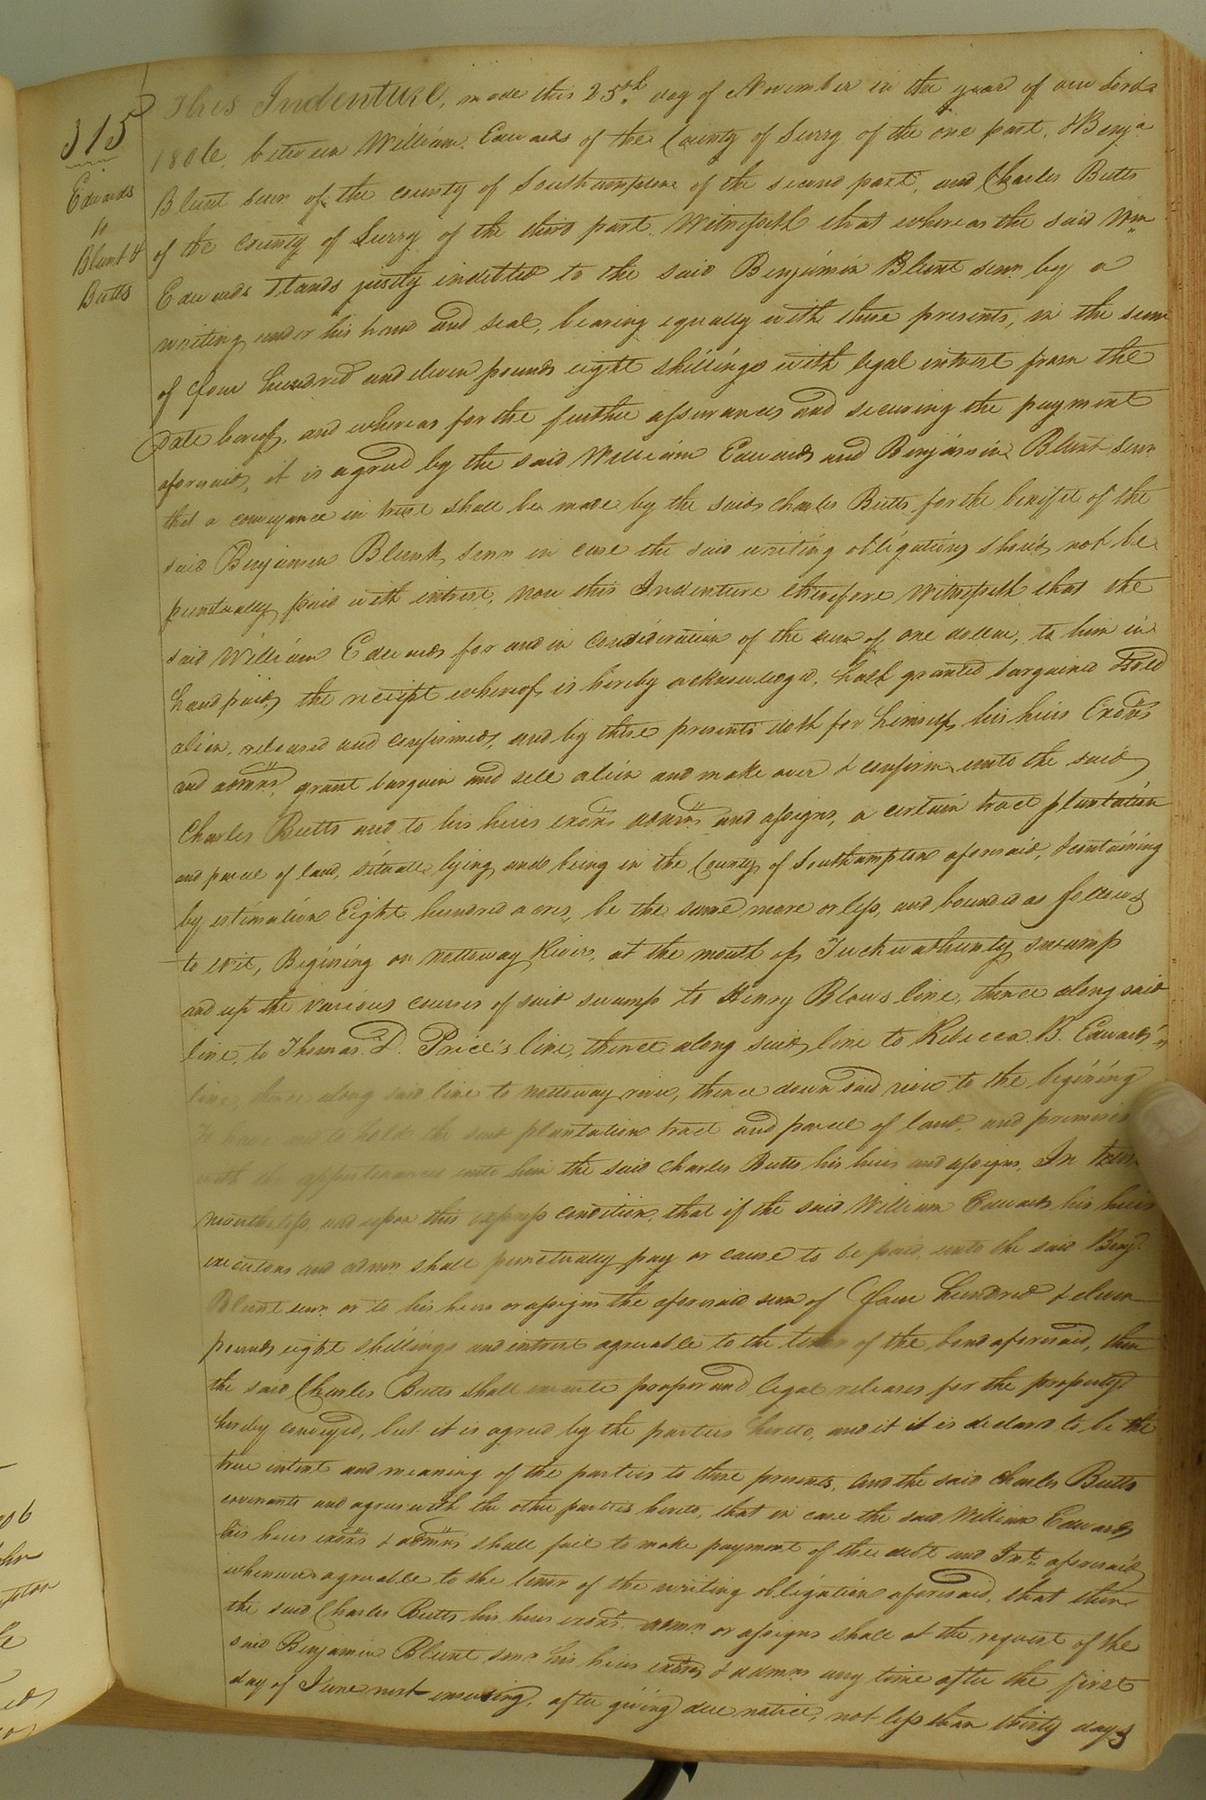 315
Edwards
to
Blunt &
Butts
This Indenture, made this 25th day of November in the year of our Lord
1806, between William Edwards of the County of Surry of the one part, & Benja
Blunt senr of the county of Southampton of the second part, and Charles Butts
of the county of Surry of the third part. Witnesseth that whereas the said Wm
Edwards stands justly indebted to the said Benjamin Blunt senr by a
writing under his hand and seal, bearing equally with these presents, in the sum
of four hundred and eleven pounds eight shillings with legal intrest from the
date hereof, and whereas for the further assurances and securing the payment
aforesaid, it is agreed by the said William Edwards and Benjamin Blunt senr
that a conveyance in trust shall be made by the said Charles Butts for the benifit of the
said Benjamin Blunt, senr in case the said writing obligatory should not be
punctually paid with intrest, now this Indenture therefore Witnesseth that the
said William Edwards for and in consideration of the sum of one dollar, to him in
hand paid, the receipt whereof is hereby acknowledged, hath granted bargained & sold
alien, released and confirmed, and by these presents doth for himself, his heirs Exors
and admrs, grant bargain and sell alien and make over & confirm unto the said
Charles Butts and to his heirs exors admrs and assigns, a certain tract plantation
and parcel of land, situate lying and being in the County of Southampton aforesaid, & containing
by estimation Eight hundred acres, be the same more or less, and bounded as follows
to wit, Begining on Nottoway River, at the mouth of swamp
and up the various courses of said swamp to Henry Blows line, thence along said
line, to Thomas D. Price's line, thence along said line to Rebecca B. Edwards's
line, thence along said line to Nottoway river, thence down said river to the begining
To have and to hold the said plantation tract and parcel of land, and premises
with the appurtenances unto him the said Charles Butts his heirs and assigns, In trust
nevertheless, and upon this express condition, that if the said William Edwards his heirs
executors and admrs shall punctually pay or cause to be paid, unto the said Benja
Blunt senr or to his heirs or assigns the aforesaid sum of four hundred & eleven
pounds eight shillings and intrest agreeable to the tenor of the bond aforesaid, then
the said Charles Butts shall execute proper and legal releases for the property
hereby conveyed, but it is agreed by the parties hereto, and it it is declared to be the
true intent and meaning of the parties to these presents, and the said Charles Butts
covenants and agrees with the other parties hereto, that in case the said William Edwards
his heirs exors & admrs shall fail to make payment of the debt and Int. aforesaid
whenever agreeable to the tenor of the writing obligation aforesaid, that then
the said Charles Butts his heirs exors. admrs or assigns shall at the request of the
said Benjamin Blunt senr his heirs exors & admrs any time after the first
day of June next ensuing, after giving due notice, not less than thirty days